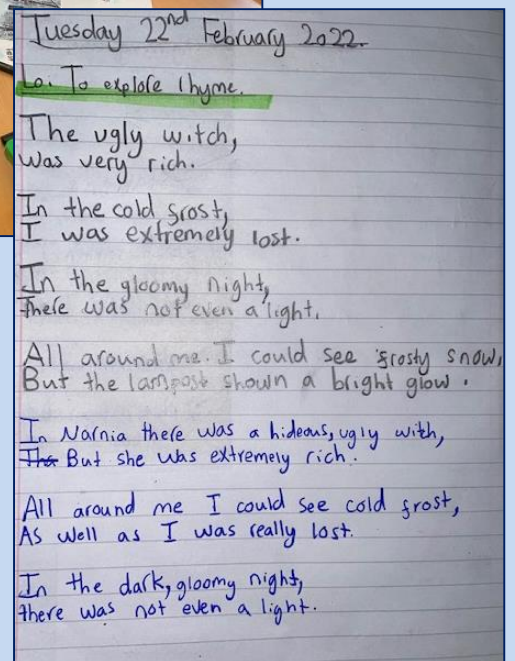 Tuesday 22nd February 2022.
Lo. To explore rhyme.
The ugly witch,
was very rich.
In the cold frost,
I was extremely lost.
In the gloomy night,
There was not even a light.
All around me. I could see frosty snow,
But the lampost shown a bright glow.
In Narnia there was a hideous, ugly with,
The But she was extremely rich.
All around me I could see cold frost,
As well as I was really lost.
In the dark, gloomy night,
there was not even a light.